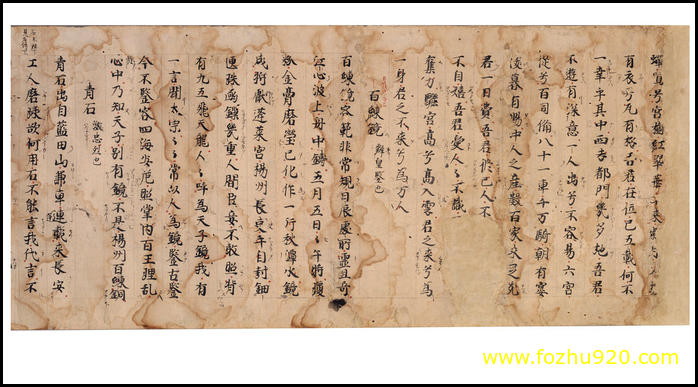 蟬鳴兮宮樹紅翠華不來歲月久
有衣兮瓦有松吾君在位已五載何不
一幸乎其中西去都門幾多地吾君
不遊有深意一人出兮不容易六宮
從兮百司備八十一車千万騎朝有宴
飫暮有賜中人之產數百家未足充
君一日費吾君修己人不
不自嬉吾君愛人〻不識
力驪宮高兮高入雲君之來兮為
一身君之不來兮為万人
百鍊鏡 辨皇王鑒也
百鍊鏡容範非常規日辰處所靈且奇
江心波上舟中鑄五月五日〻午時瓊
粉金膏磨瑩已化作一片秋潭水鏡
成將獻蓬萊宮揚州長吏手自封鈿
匣珠函鏁幾重人間臣妾不敢照背
有九五飛天龍人〻呼為天子鏡我有
一言聞太宗〻〻常以人為鏡鑒古鑒
今不鑒容四海安危照掌內百王理乱
心中乃知天子別有鏡不是揚州百鍊銅
青石 激忠烈也
青石出自藍田山兼車運載來長安
工人磨琢欲何用石不能言我代言不
www.fozhu920.com